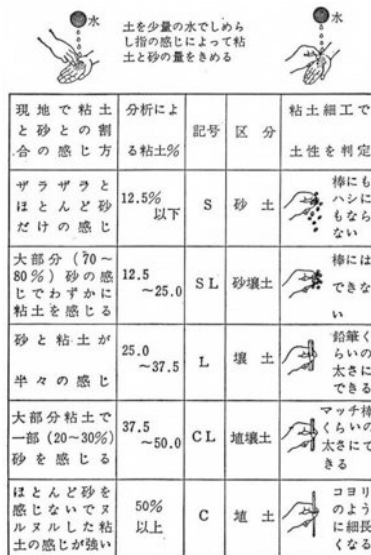 水
土を少量の水でしめら
し指の感じによって粘
土と砂の量をきめる
水
現地で粘土
と砂との割
合の感じ方
分析によ
る粘土%
記号
区分
粘土細工で
土性を判定
ザラザラと
ほとんど砂
だけの感じ
12.5%
以下
S
砂土
棒にも
ハシに
もなら
ない
大部分(70～
80%)砂の感
じでわずかに
粘土を感じる
12.5
～25.0
SL
砂壌土
棒には
できな
い
砂と粘土が
半々の感じ
25.0
～37.5
L
壌土
鉛筆く
らいの
太さに
できる
大部分粘土で
一部(20～30%)
砂を感じる
37.5
～50.0
CL
埴壌土
マッチ棒
くらいの
太さにで
きる
ほとんど砂を
感じないでヌ
ルヌルした粘
土の感じが強い
50%
以上
C
埴土
コヨリ
のよう
に細長
くなる